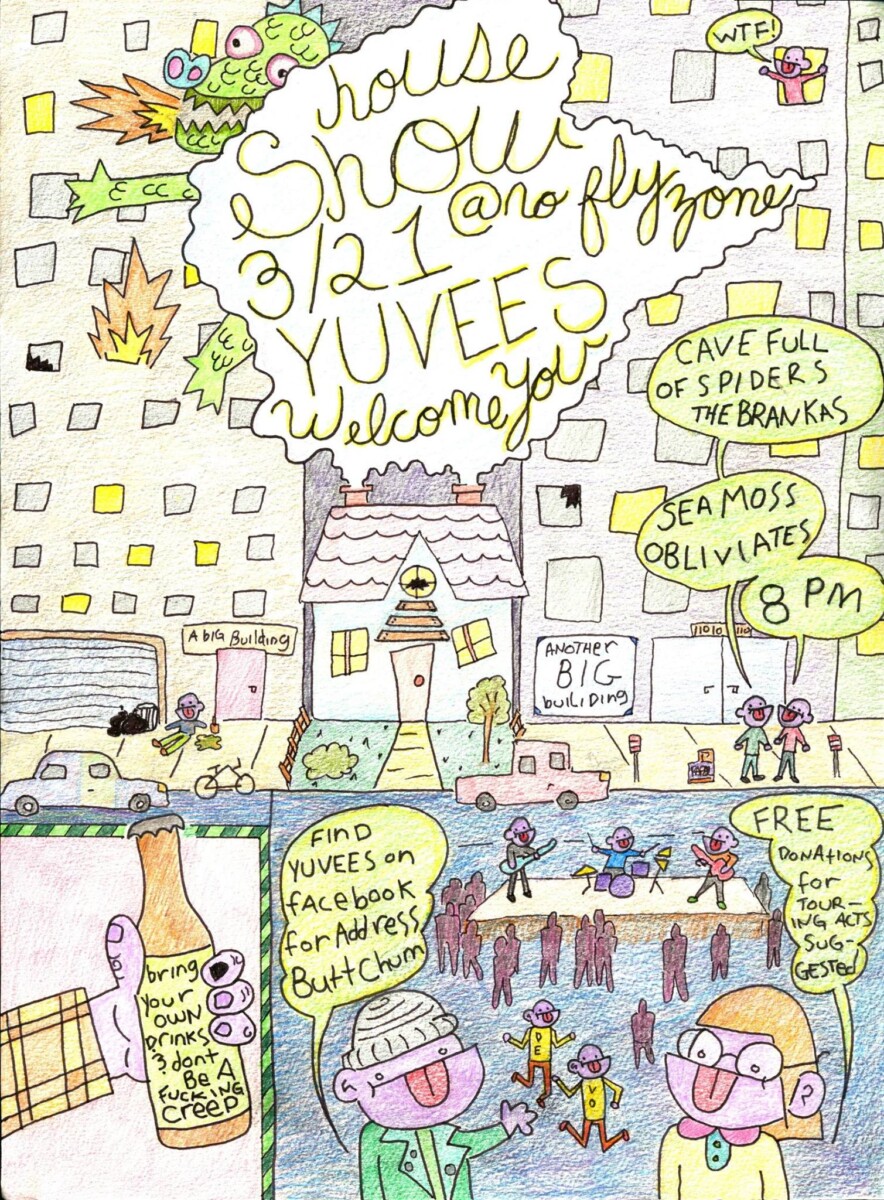 WTF!
house
Show
@no fly zone
3/21
YUVEES
Welcome You
CAVE FULL
OF SPIDERS
THE BRANKAS
SEA MOSS
OBLIVIATES
8 PM
A bIG Building
ANOTHER
BIG
builiding
11010 110
FIND
YUVEES on
facebook
for Address
Butt Chum
FREE
DONAtIONS
for
TOUR-
ING ACTS
SUG-
GEsted
bring
your
OWN
Drinks
& dont
Be A
fucking
Creep
DE
VO